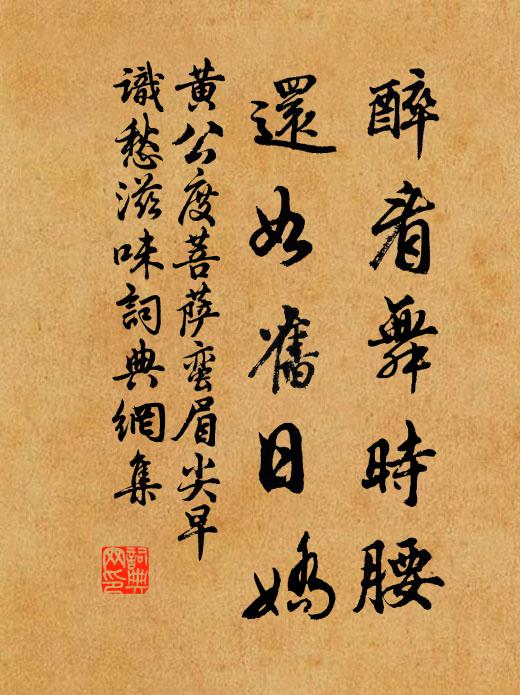 醉看舞時腰
還如舊日嬌
黃公度菩薩蠻眉尖早
識愁滋味詞典網集
詞典網印